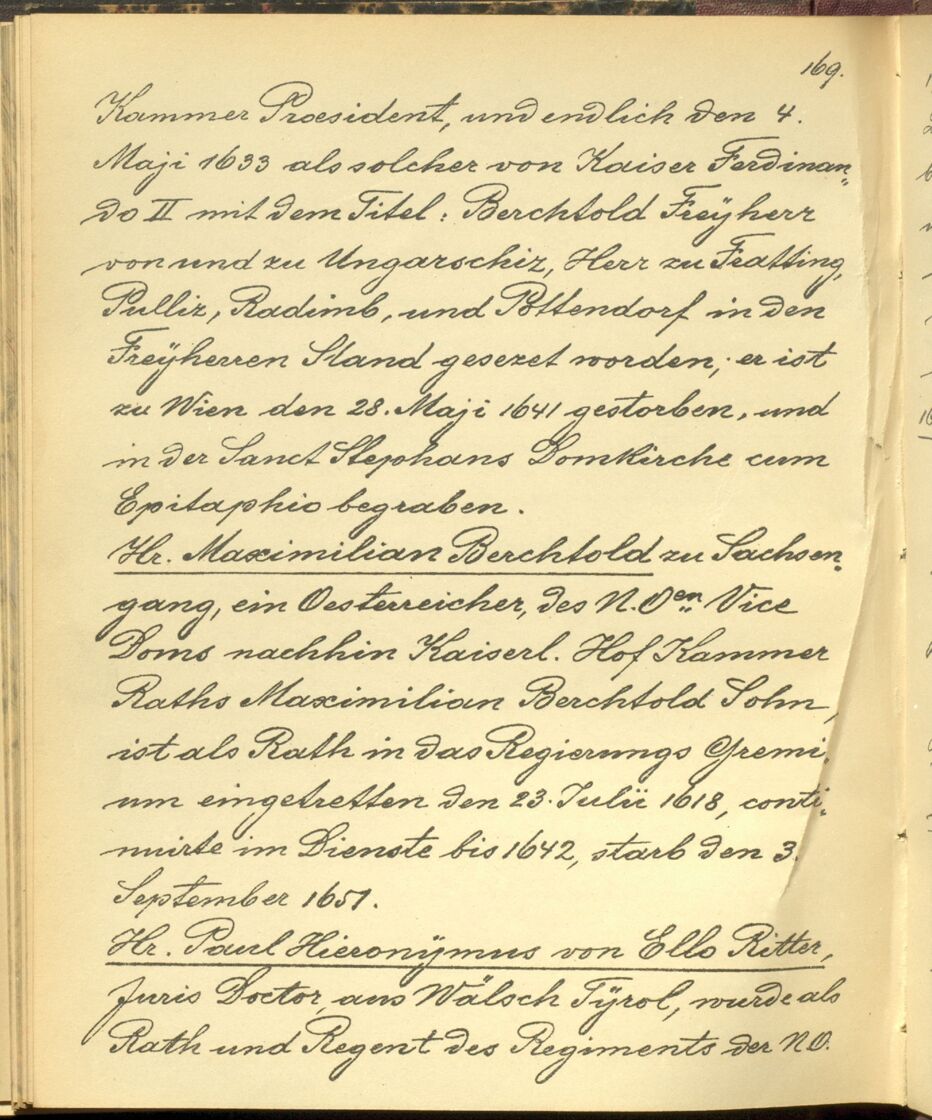 169.
Kammer Præsident, und endlich den 4.
Maji 1633 als solcher von Kaiser Ferdinan„
do II mit dem Titel: Berchtold Freÿherr
von und zu Ungarschiz, Herr zu Fratting,
Pulliz, Radimb, und Pottendorf in den
Freÿherren Stand gesezet worden; er ist
zu Wien den 28. Maji 1641 gestorben, und
in der Sanct Stephans Domkirche cum
Epitaphio begraben.
Hr. Maximilian Berchtold zu Sachsen„
gang, ein Oesterreicher, des N. Oen Vice
Doms nachhin Kaiserl. Hof Kammer
Raths Maximilian Berchtold Sohn,
ist als Rath in das Regierungs Gremi„
um eingetretten den 23. Julii 1618, conti„
nuirte im Dienste bis 1642, starb den 3.
September 1651.
Hr. Paul Hieronÿmus von Ello Ritter,
Juris Doctor, aus Wälsch Tÿrol, wurde als
Rath und Regent des Regiments der N.O.